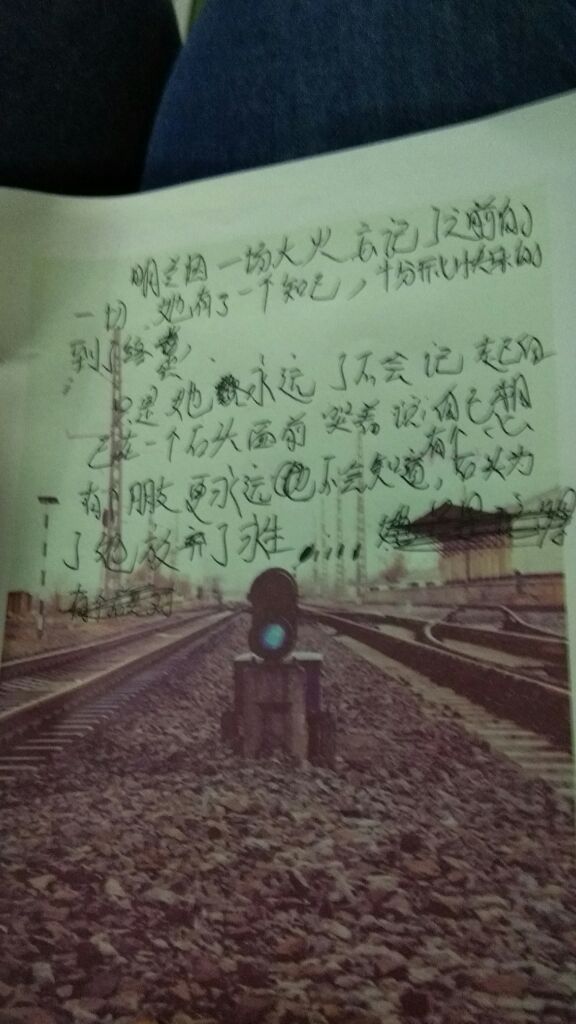 明兰因一场大火忘记了之前的
一切 她有了一个知己，十分和快乐的
到了终
只是她永远了不会记起自
己在一个石头面前哭着说自己想
有个朋友更永远也不会知道，石头为
了她放弃了永生